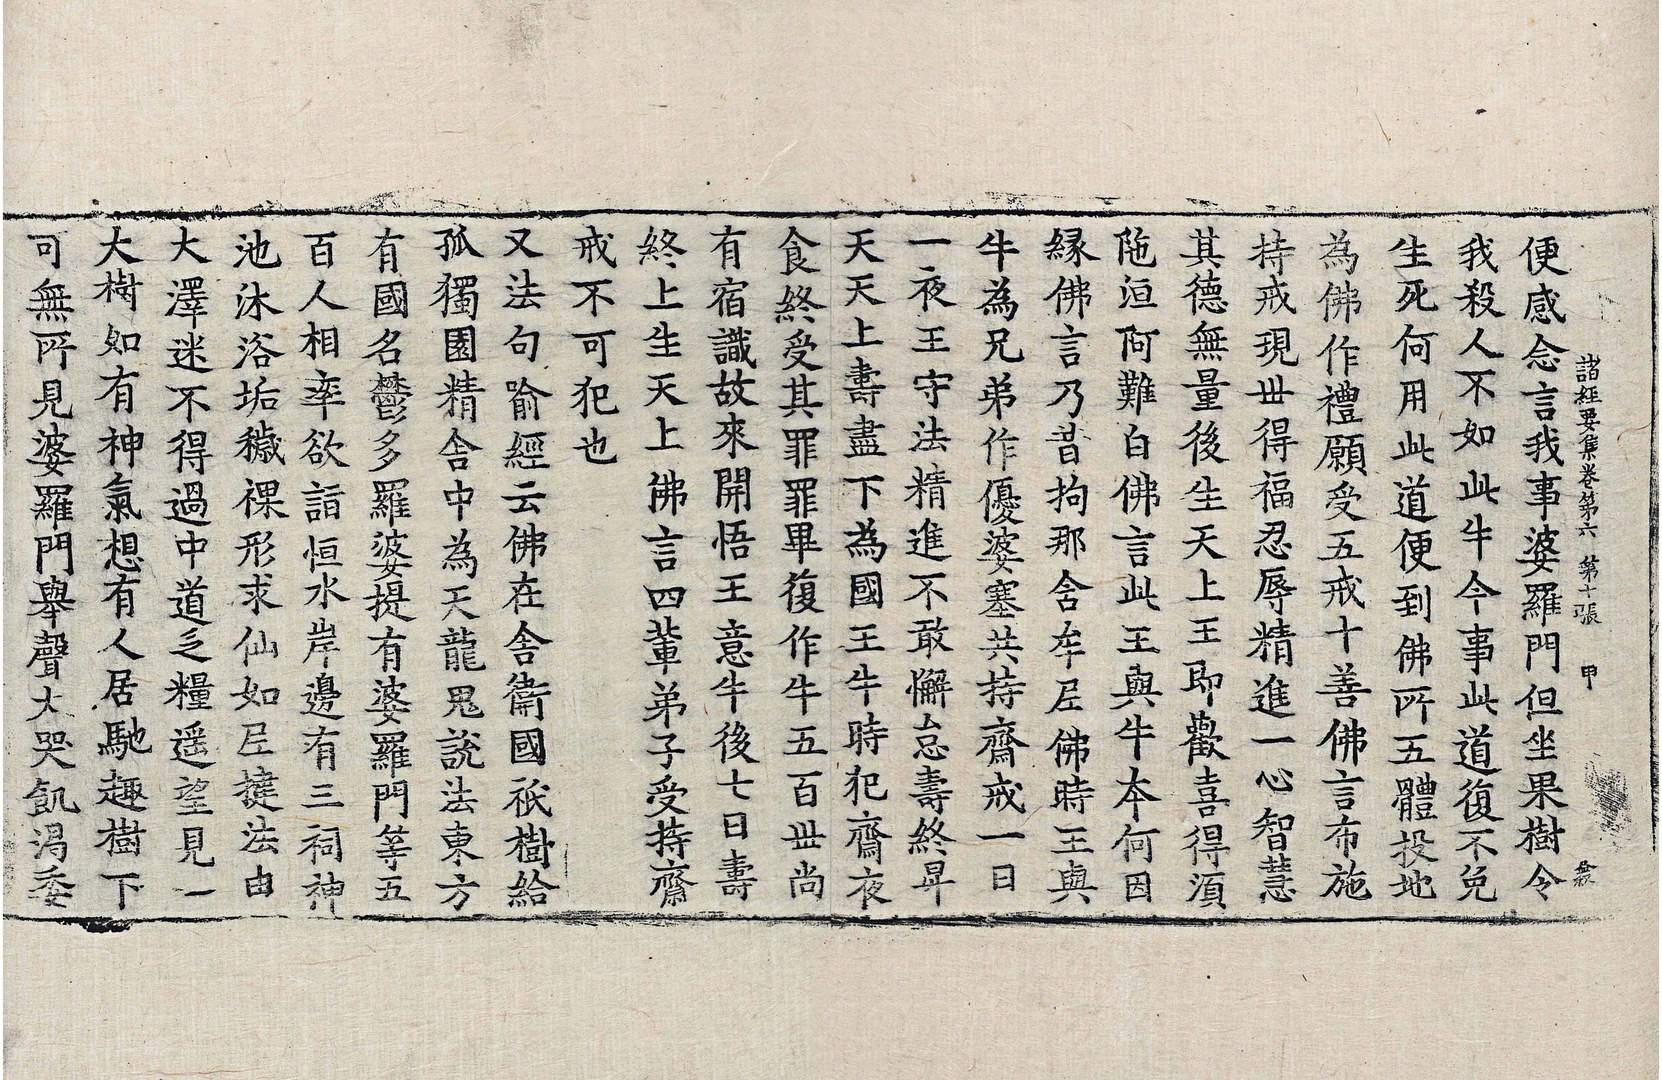 諸經要集卷第六　第十張　甲
便感念言我事婆羅門但坐果樹令
我殺人不如此牛今事此道復不免
生死何用此道便到佛所五體投地
為佛作禮願受五戒十善佛言布施
持戒現世得福忍辱精進一心智慧
其德無量後生天上王即歡喜得湏
陁洹阿難白佛言此王與牛本何因
緣佛言乃昔拘那含牟尼佛時王與
牛為兄弟作優婆塞共持齋戒一日
一夜王守法精進不敢懈怠壽終昇
天天上壽盡下為國王牛時犯齋夜
食終受其罪罪畢復作牛五百世尚
有宿識故來開悟王意牛後七日壽
終上生天上佛言四輩弟子受持齋
戒不可犯也
又法句喻經云佛在舍衛國祇樹給
孤獨園精舍中為天龍鬼說法東方
有國名鬱多羅婆提有婆羅門等五
百人相率欲詣恒水岸邊有三祠神
池沐浴垢穢裸形求仙如尼揵法由
大澤迷不得過中道乏糧遥望見一
大樹如有神氣想有人居馳趣樹下
可無所見婆羅門舉聲大哭飢渴委